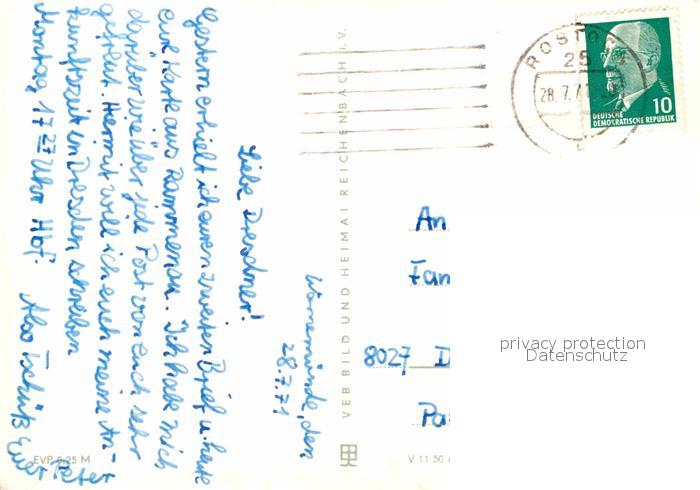 Warnemünde, den
28.7.71
Liebe Dresdner!
Gestern erhielt ich euren zweiten Brief u. heute
eine Karte aus Rammenau. Ich habe mich
darüber wie über jede Post von Euch sehr
gefreut. Hiermit will ich euch meine An-
kunftszeit in Dresden schreiben
Montag, 17 27 Uhr Hbf. Also Tschüß Euer
Peter
EVP 0,25 M
VEB BILD UND HEIMAT REICHENBACH i. V.
V 11 50
ROSTO
25
28.7.7
10
DEUTSCHE
DEMOKRATISCHE REPUBLIK
An
Fam
8027 D
Pa
privacy protection
Datenschutz